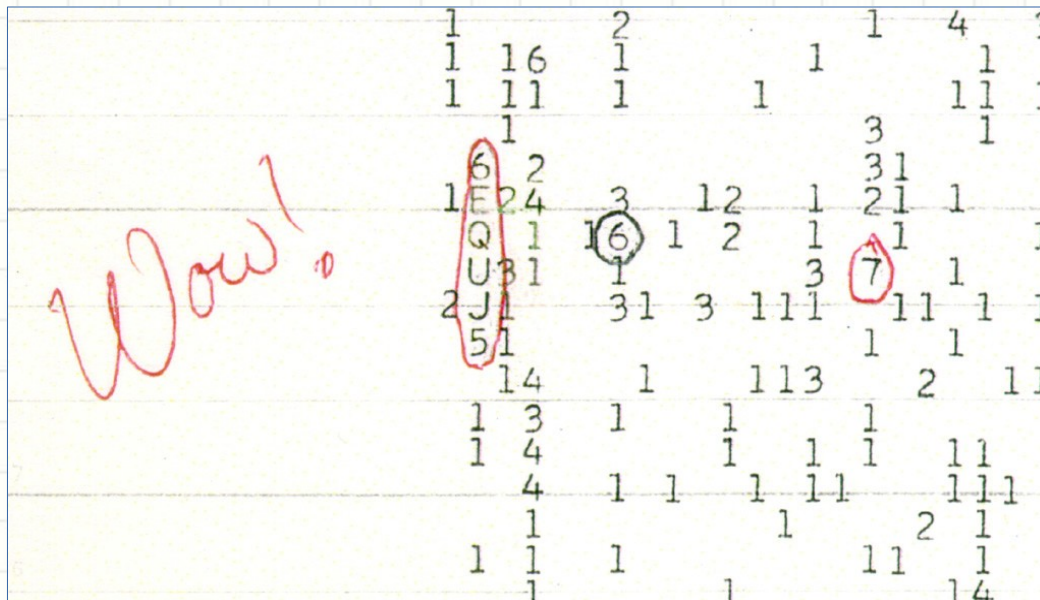 Wow!
1 2 1 4 1
1 16 1 1 1
1 11 1 1 11 1
1 3 1
6 2 31
1E24 3 12 1 21 1
Q 1 16 1 2 1 1
U31 1 3 7 1
2J1 31 3 111 11 1 1
51 1 1
14 1 113 2 11
1 3 1 1 1
1 4 1 1 1 11
4 1 1 1 11 111
1 1 2 1
1 1 1 11 1
1 1 14